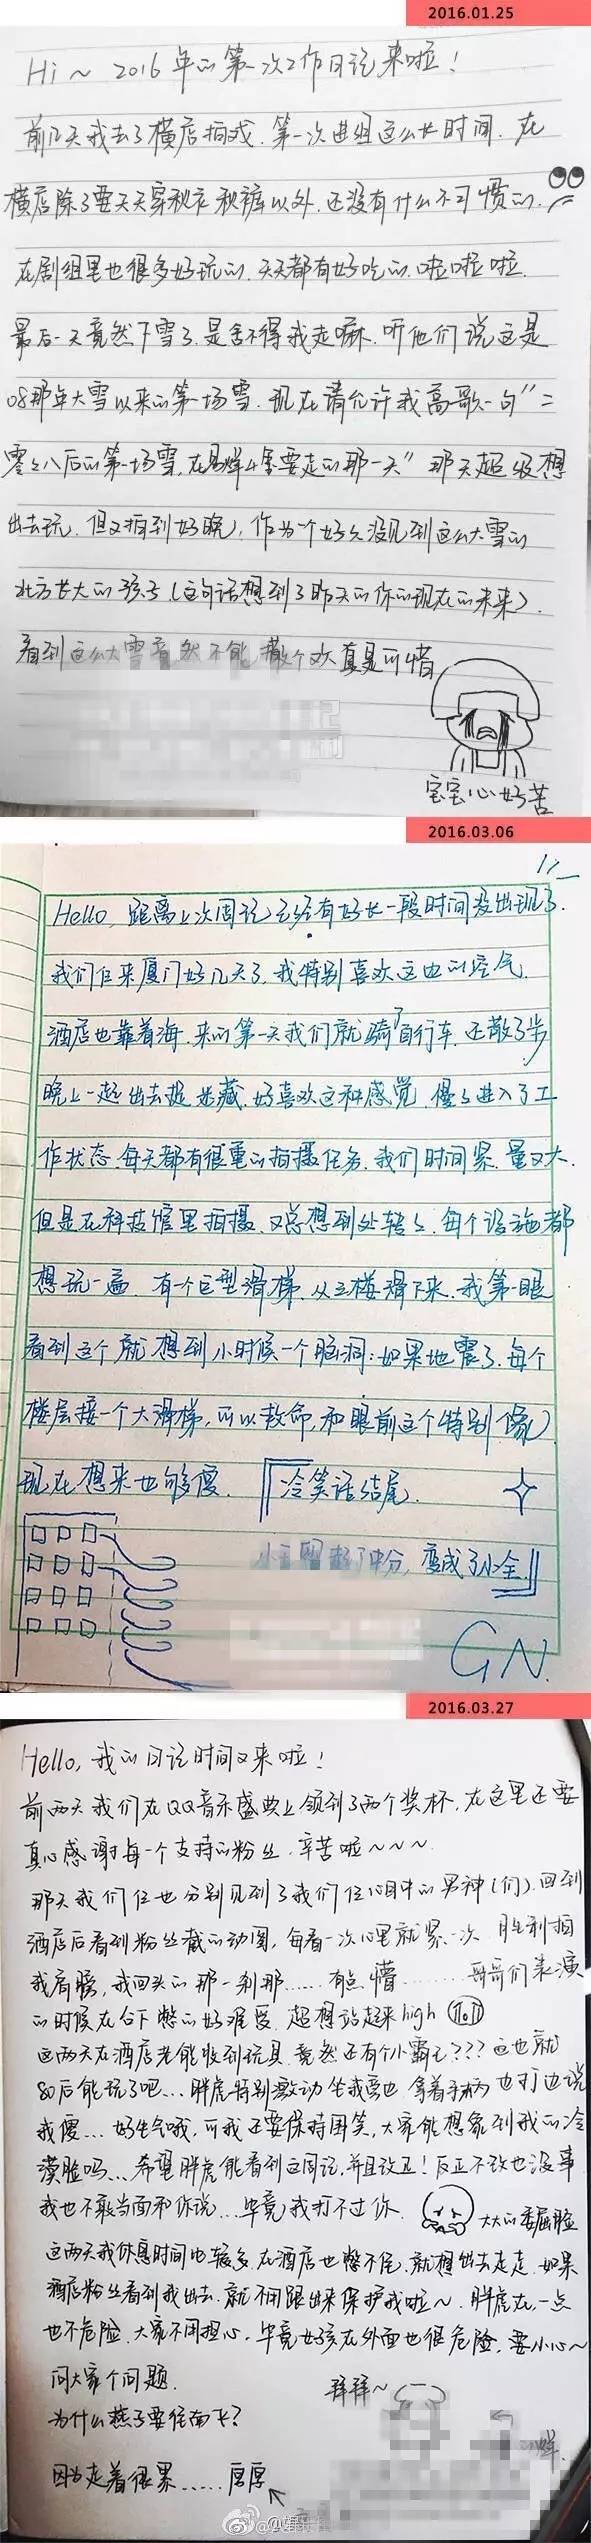 2016.01.25
Hi～2016年的第一次工作日记来啦！
前几天我去了横店拍戏.第一次进组这么长时间.在
横店除了要天天穿秋衣秋裤以外.还没有什么不习惯的.
在剧组里也很多好玩的.天天都有好吃的.啦啦啦.
最后一天竟然下雪了.是舍不得我走嘛.听他们说这是
08那年大雪以来的第一场雪.现在请允许我高歌一句"二
零零八后的第一场雪,在易烊千玺要走的那一天"那天超级想
出去玩.但又拍到好晚,作为一个好久没见到这么大雪的
北方长大的孩子(这句话想到了昨天的你的现在的未来).
看到这么大雪竟然不能撒个欢真是可惜
宝宝心好苦
2016.03.06
Hello,距离上次周记已经有好长一段时间没出现了.
我们仨来厦门好几天了,我特别喜欢这边的空气
酒店也靠着海.来的第一天我们就骑了自行车.还散了步
晚上一起出去捉迷藏.好喜欢这种感觉.慢慢进入了工
作状态.每天都有很重的拍摄任务.我们时间紧.量又大.
但是在科技馆里拍摄.又总想到处转转.每个设施都
想玩一遍.有一个巨型滑梯.从三楼滑下来.我第一眼
看到这个就想到小时候一个脑洞:如果地震了.每个
楼层接一个大滑梯,可以救命,和眼前这个特别像)
现在想来也够傻.『冷笑话结尾.
中分,变成了小全.』
GN.
2016.03.27
Hello,我的周记时间又来啦！
前两天我们在QQ音乐盛典上领到了两个奖杯.在这里还要
真心感谢每一个支持的粉丝.辛苦啦～～～.
那天我们仨也分别见到了我们仨心目中的男神(们).回到
酒店后看到粉丝截的动图,每看一次心里就紧一次 胜利拍
我肩膀,我回头的那一刹那......有点懵......哥哥们表演
的时候在台下憋的好难受.超想站起来high
这两天在酒店老能收到玩具.竟然还有个小霸王???这也就
80后能玩了吧...胖虎特别激动坐我旁边.拿着手柄边打边说
我傻...好生气哦,可我还要保持围笑,大家能想象到我的冷
漠脸吗...希望胖虎能看到这周记,并且改正！反正不改也没事
我也不敢当面和你说...毕竟我打不过你. 大大的委屈脸
这两天我休息时间也较多.在酒店也憋不住.就想出去走走.如果
酒店粉丝看到我出去.就不用跟出来保护我啦～.胖虎在一点
也不危险.大家不用担心.毕竟女孩在外面也很危险.要小心～
问大家个问题. 拜拜～
为什么燕子要往南飞?
因为走着很累......厚厚